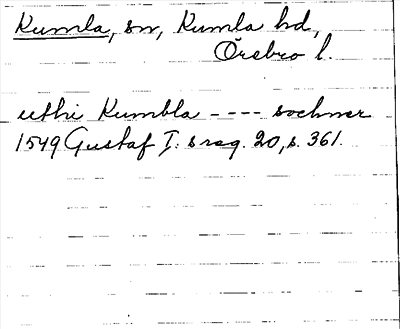 Kumla, sn, Kumla hd,
Örebro l.
uthi Kumbla ---- sochner
1549 Gustaf I:s reg. 20, s. 361.